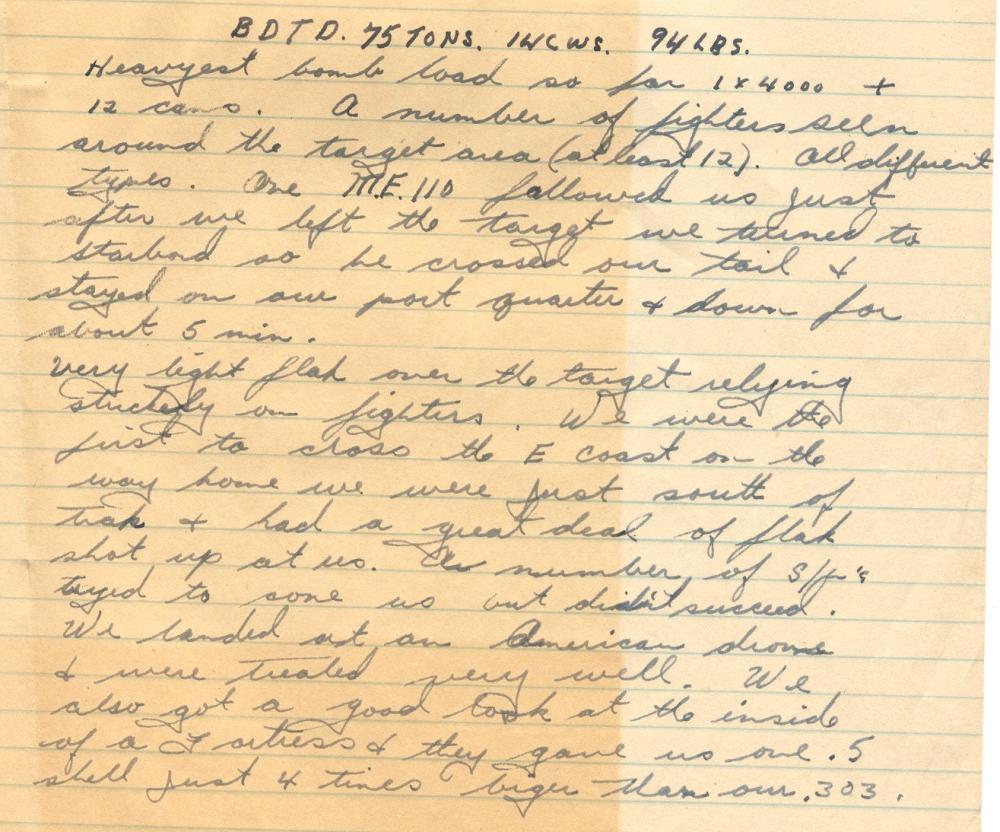 BDTD. 75 TONS. 14CWS. 94 LBS.
Heavyest bomb load so far 1 x 4000 +
12 cans. A number of fighters seen
around the target area (at least 12). All different
types. One M.E. 110 followed us just
after we left the target we turned to
starbord so he crossed our tail &
stayed on our port quarter & down for
about 5 min.
Very light flak over the target relying
on fighters. We were the
first to cross the E coast on the
way home we were just south of
trak & had a great deal of flak
shot up at us. A number of S/L's
tryed to cone us but didn't succeed.
We landed at an American drome
& were treated very well. We
also got a good look at the inside
of a Fortress & they gave us one .5
shell just 4 times biger than our .303.